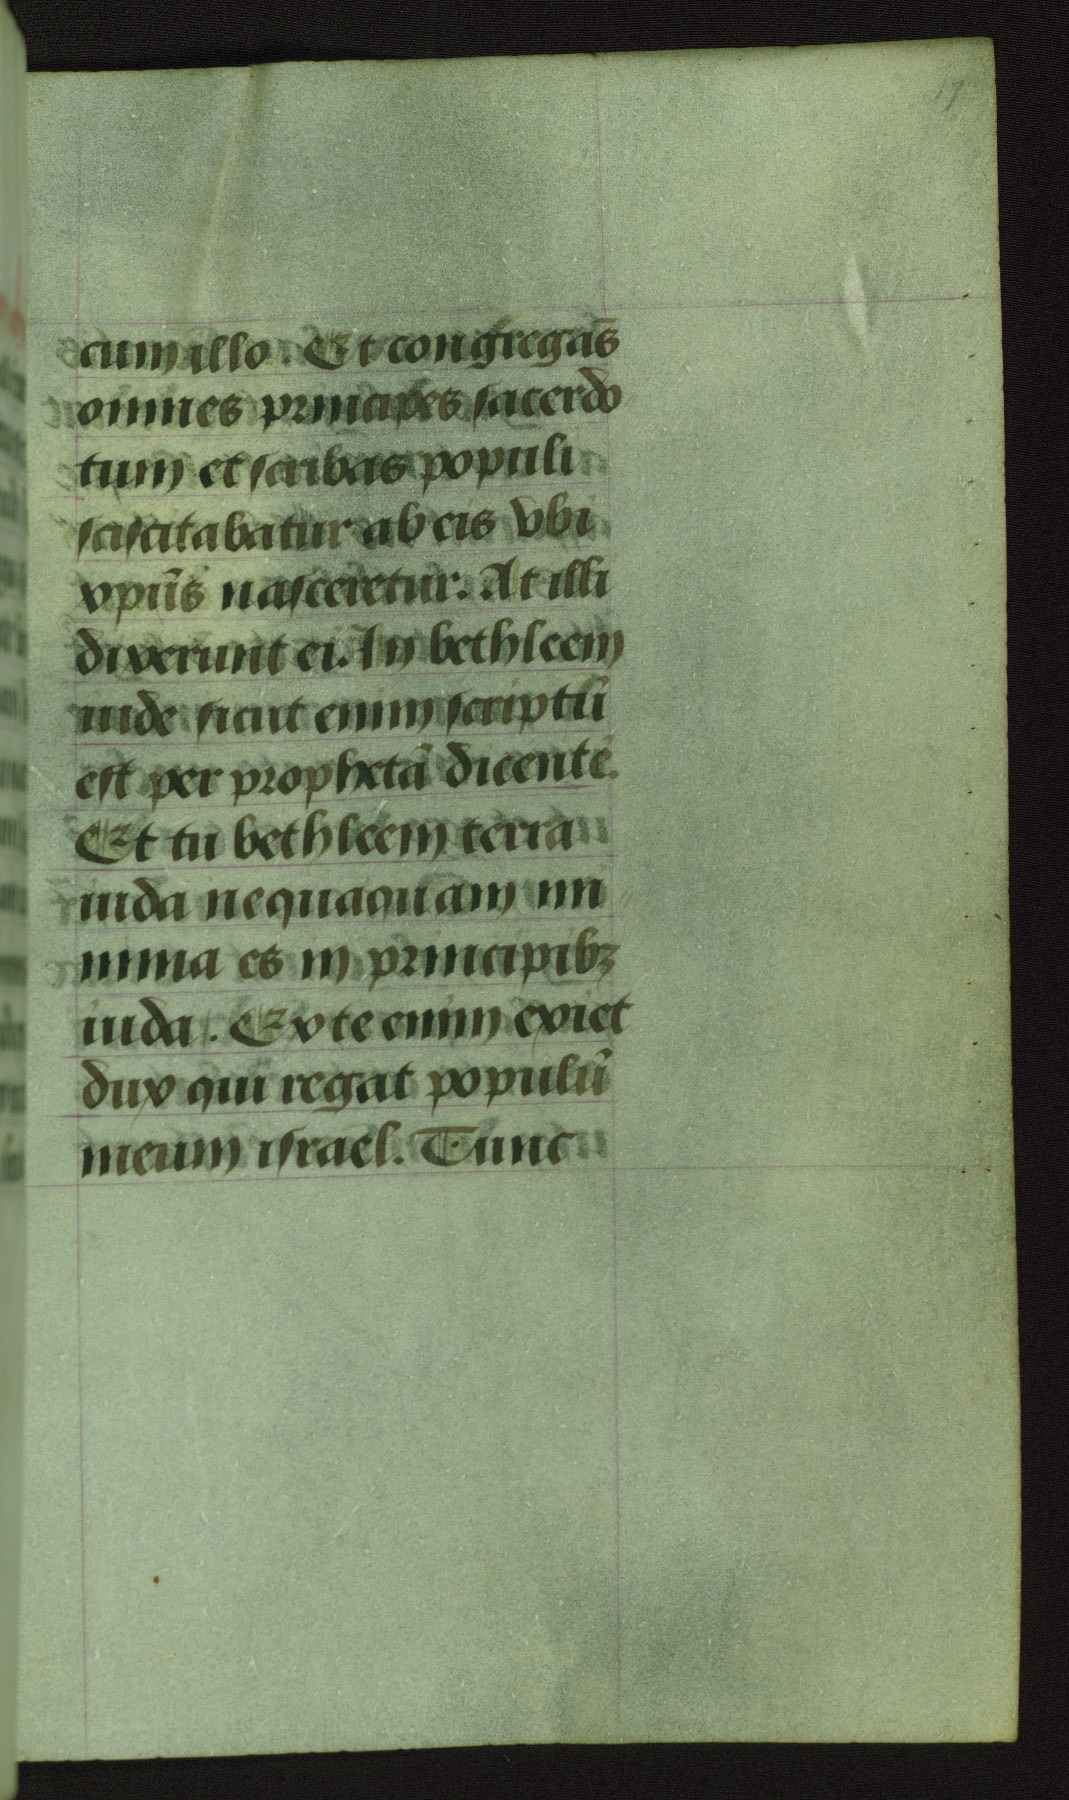 17
cum illo. Et congregãs
omnes principes sacerdo
tum et scribas populi
sciscitabatur ab eis vbi
xpũs nasceretur. At illi
dixerunt ei. In bethleem
iude sicut enim scriptũ
est per prophetã dicentẽ.
Et tu bethleem terra
iuda nequaquam mi
nima es in principibꝫ
iuda. Ex te enim exiet
dux qui regat populũ
meum israel. Tunc